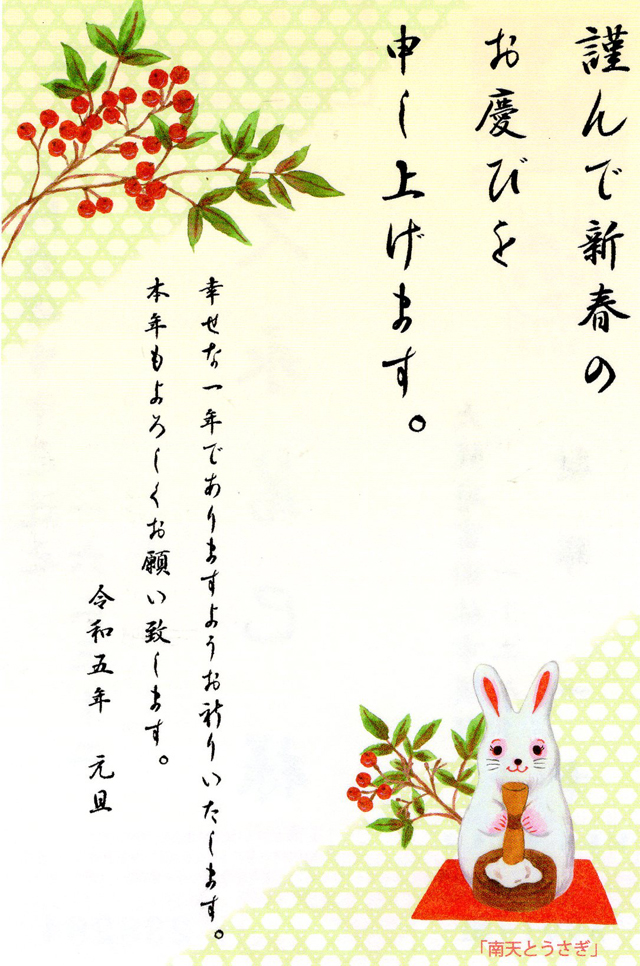 謹んで新春の
お慶びを
申し上げます。
幸せな一年でありますようお祈りいたします。
本年もよろしくお願い致します。
令和五年　元旦
「南天とうさぎ」